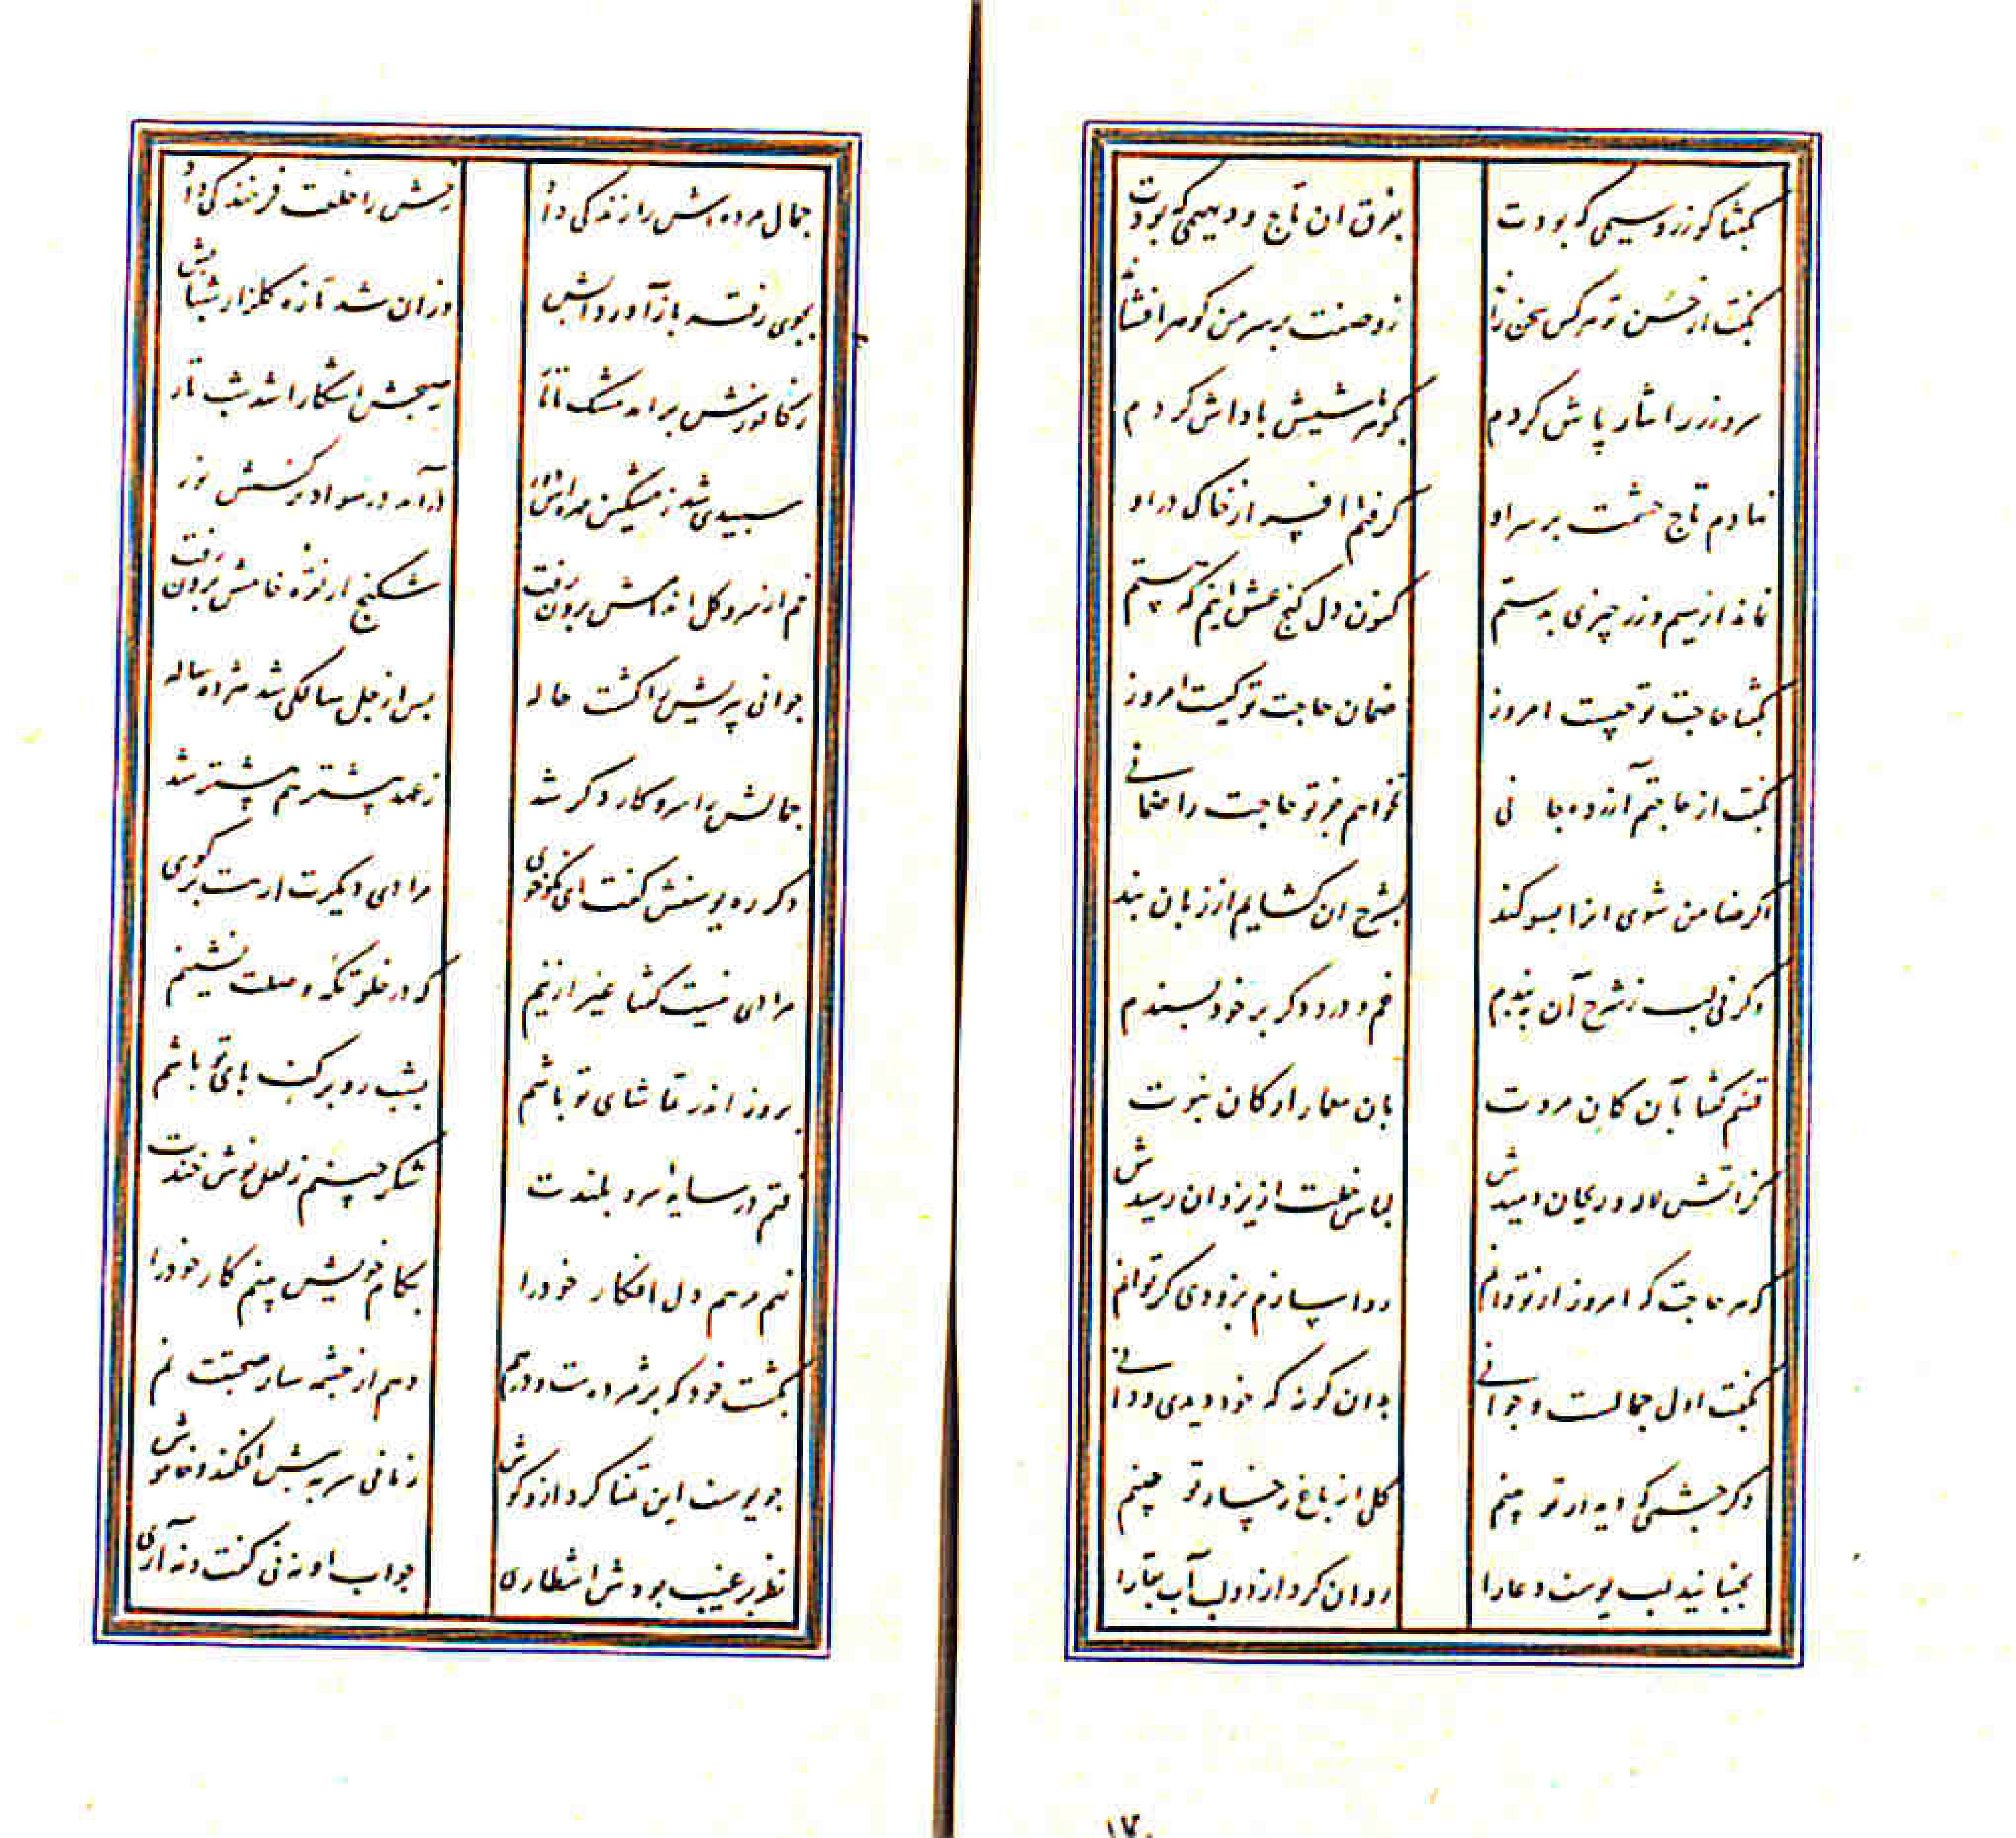 بگفتا کو زر و سیمی که بودت    بفرق ان تاج و دیهیمی که بودت
بگفت از حسن تو هر کس سخن راند    ز وصفت بر سر من گوهر افشاند
سر و زر را نثار پاش کردم    بگوهر پاشیش پاداش کردم
نهادم تاج حشمت بر سر او    گرفتم افسر از خاک در او
نماند از سیم و زر چیزی بدستم    کنون دل گنج عشق اینم که هستم
بگفتا حاجت تو چیست امروز    ضمان حاجت تو کیست امروز
بگفت از حاجتم آزرده جانی    نخواهم جز تو حاجت را ضمانی
اگر ضامن شوی انرا بسوگند    بشرح ان گشایم از زبان بند
وگر نی لب ز شرح آن ببندم    غم و درد دگر بر خود پسندم
قسم گفتا بآن کان مروت    بان معمار ارکان نبوت
کز اتش لاله و ریحان دمیدش    لباس خلت از یزدان رسیدش
که هر حاجت که امروز از تو دانم    روا سازم بزودی گر توانم
بگفت اول جمالست و جوانی    بدان گونه که خود دیدی و دانی
دگر چشمی که دیدار تو بینم    گلی از باغ رخسار تو چینم
بجنبانید لب یوسف دعا را    روان کرد از دو لب آب بقا را
جمال مرده اش را زندگی داد    رخش را خلعت فرخندگی داد
بجوی رفته باز آورد آبش    وزان شد تازه گلزار شبابش
ز کافورش بر امد مشک تاتار    ز صبحش اشکارا شد شب تار
سپیدی شد ز مشکین مهره اش دور    درآمد در سواد نرگسش نور
خم از سرو گل اندامش برون رفت    شکنج از نقره خامش برون رفت
جوانی پیریش را گشت هاله    پس از چل سالگی شد هژده ساله
جمالش را سر و کار دگر شد    ز عهد پیشتر هم پیشتر شد
دگر ره یوسفش گفت ای نکوخوی    مراد دیگرت ار هست برگوی
مرادی نیست گفتا غیر ازینم    که در خلوتگه وصلت نشینم
بروز اندر تماشای تو باشم    بشب رو بر کف پای تو باشم
فتم در سایه سرو بلندت    شکر چینم ز لعل نوش خندت
نهم مرهم دل افکار خود را    بکام خویش بینم کار خود را
بکشت خود که پژمرده ست و درهم    دهم از چشمه سار صحبتت نم
چو یوسف این تمنا کرد ازو گوش    زمانی سر به پیش افکند و خاموش
نظر بر غیب بودش انتظاری    جواب او نه نی گفت و نه آری
۱۷۰